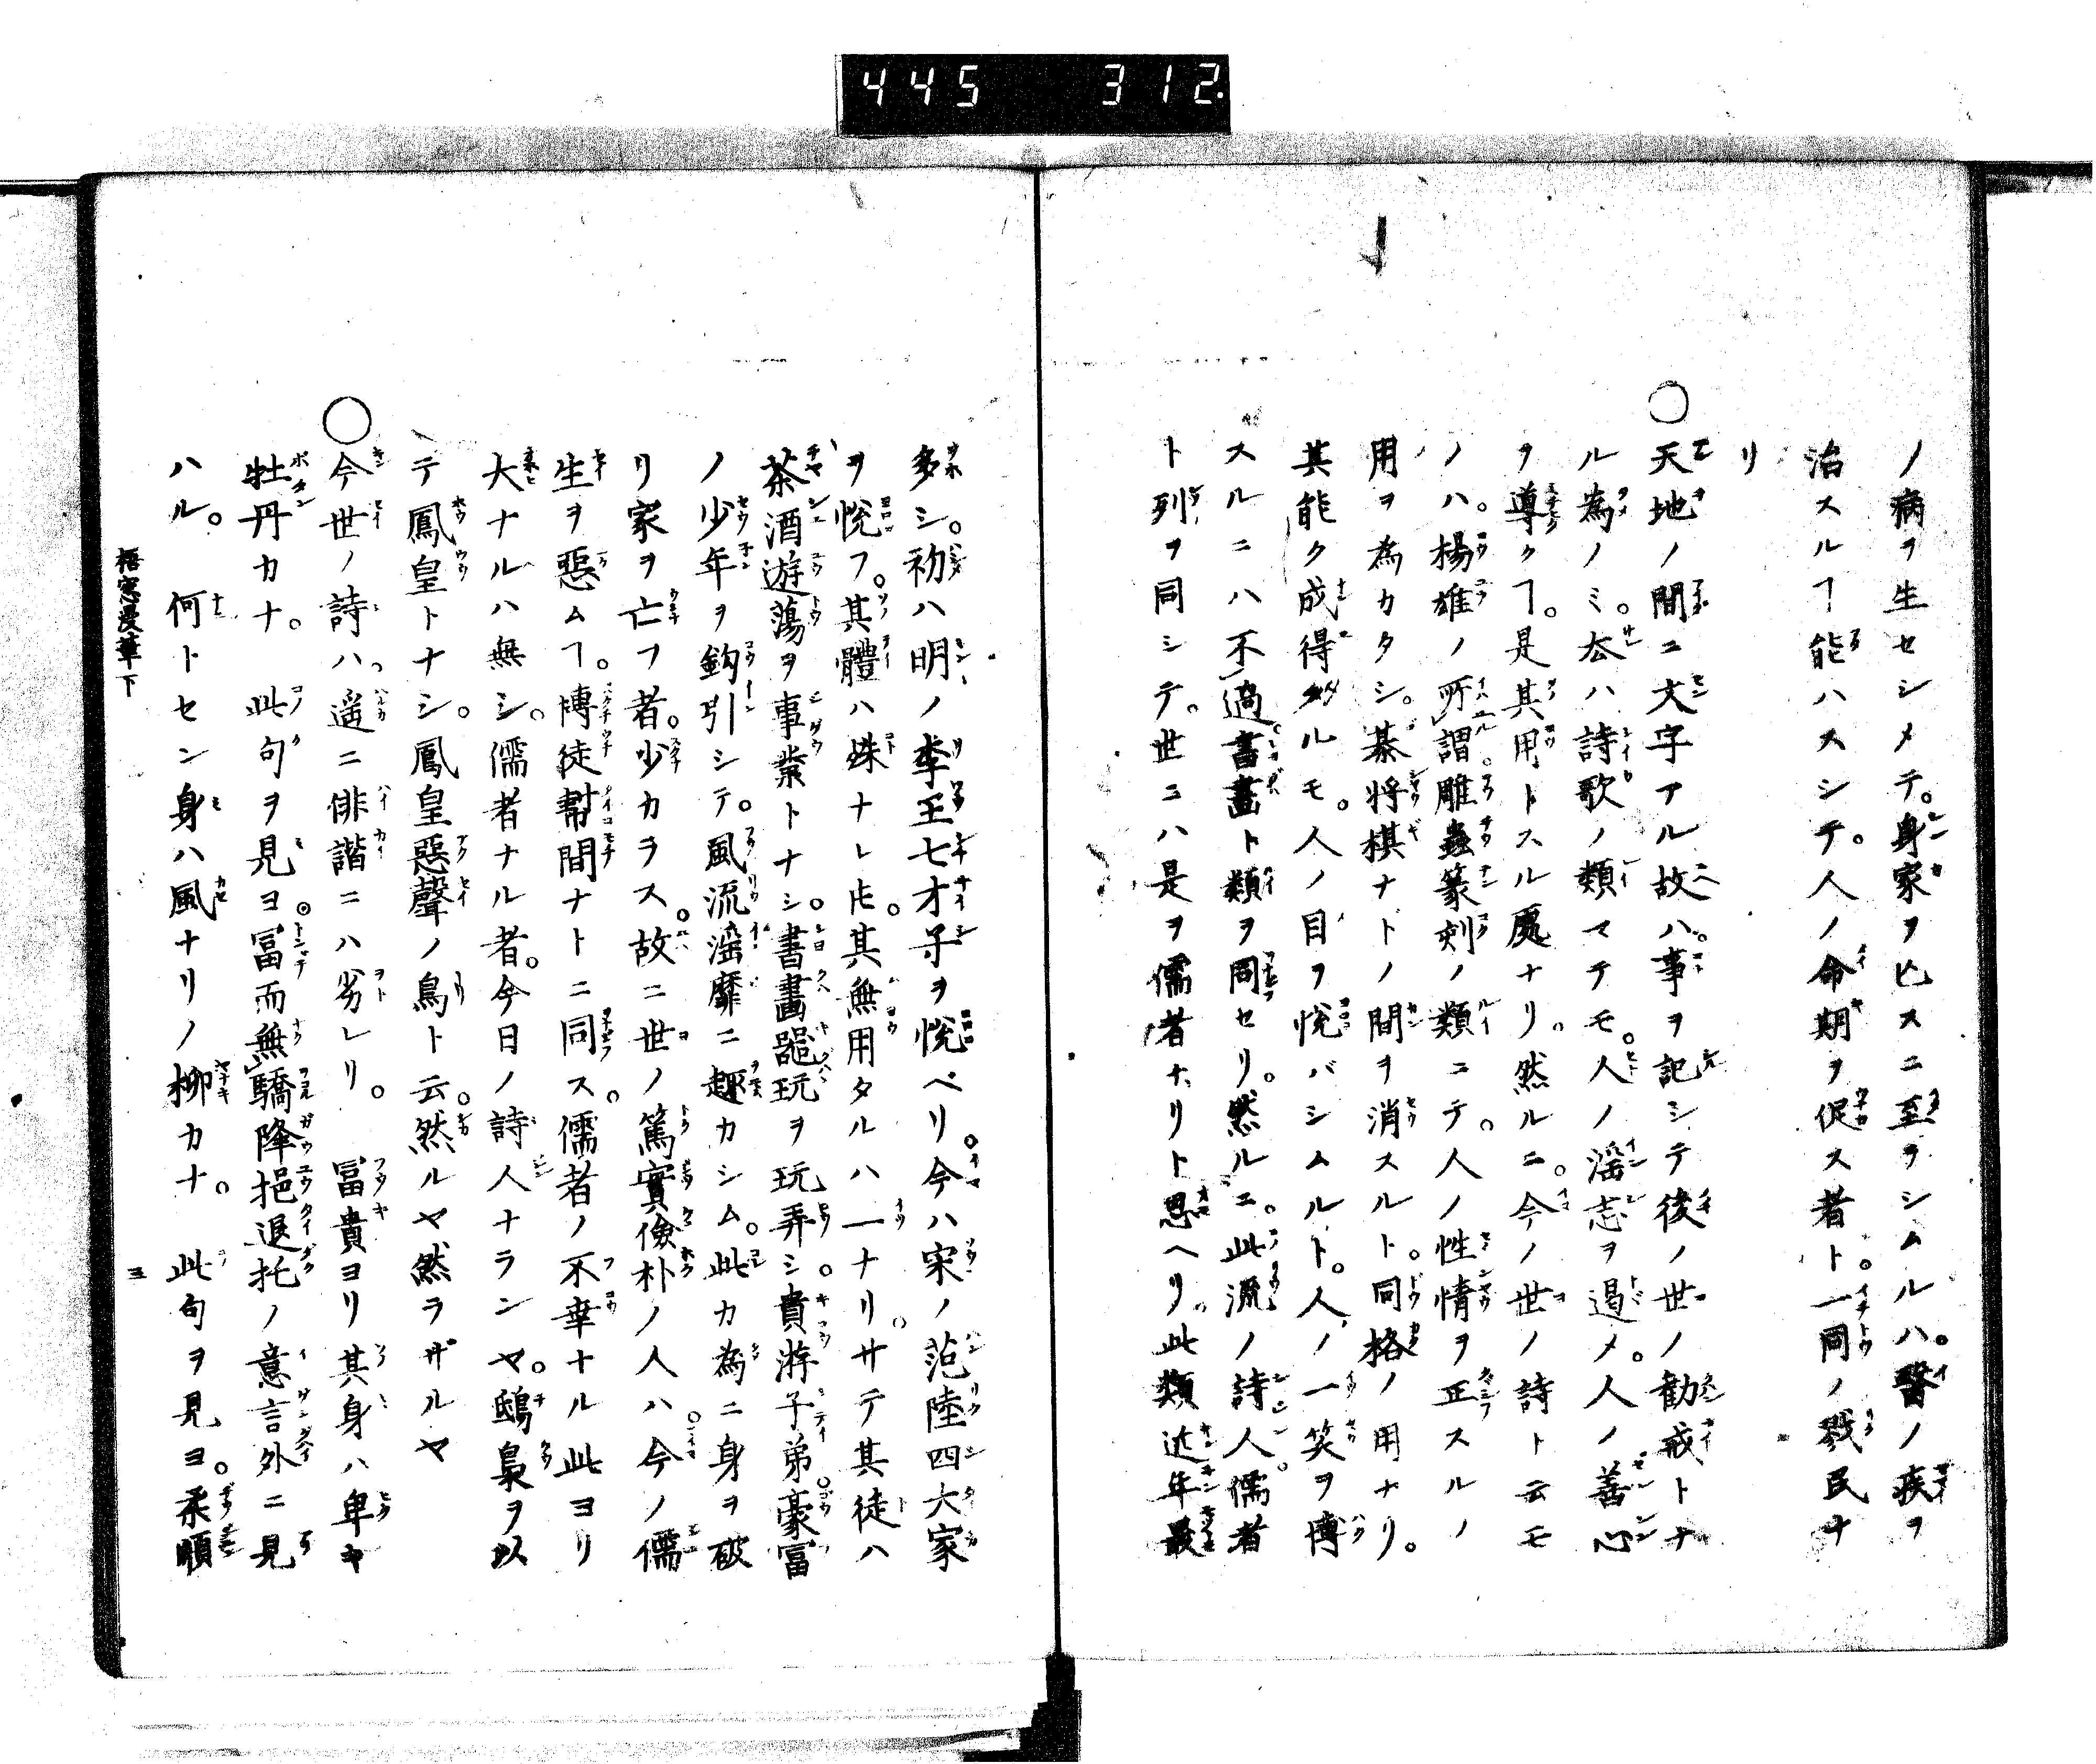 445 312.
ノ病ヲ生セシメテ。身家ヲ亡スニ至ラシムルハ。醫ノ疾ヲ
治スルヿ能ハスシテ。人ノ命期ヲ促ス者ト。一同ノ戮民ナ
リ
○天地ノ間ニ文字アル故ハ。事ヲ記シテ後ノ世ノ勸戒トナ
ル為ノミ。杢ハ詩歌ノ類マテモ。人ノ淫志ヲ遏メ。人ノ善心
ヲ導クヿ。是其用トスル處ナリ。然ルニ。今ノ世ノ詩ト云モ
ノハ。楊雄ノ所謂。雕蟲篆刻ノ類ニテ。人ノ性情ヲ正スルノ
用ヲ為カタシ。棊将棋ナドノ間ヲ消スルト。同格ノ用ナリ。
其能ク成得タルモ。人ノ目ヲ悅バシムルト。人ノ一笑ヲ博
スルニハ不過書畵ト類ヲ同セリ。然ルニ。此流ノ詩人。儒者
ト列ヲ同シテ。世ニハ是ヲ儒者ナリト思ヘリ。此類近年最
多シ。初ハ明ノ李王七才子ヲ悅ベリ。今ハ宋ノ范陸四大家
ヲ悅フ。其體ハ殊ナレ𪜈。其無用タルハ一ナリ。サテ其徒ハ
茶酒遊蕩ヲ事業トナシ。書畵噐玩ヲ玩弄シ。貴游子弟。豪冨
ノ少年ヲ鈎引シテ。風流滛靡ニ趣カシム。此カ為ニ身ヲ破
リ家ヲ亡フ者。少カラス。故ニ世ノ篤實儉朴ノ人ハ。今ノ儒
生ヲ惡ムヿ。博徒幇間ナトニ同ス。儒者ノ不幸ナル此ヨリ
大ナルハ無シ。儒者ナル者。今日ノ詩人ナランヤ。鴟梟ヲ以
テ鳳皇トナシ。鳳皇惡聲ノ鳥ト云。然ルヤ然ラザルヤ
○今世ノ詩ハ。遥ニ俳諧ニハ劣レリ。 冨貴ヨリ其身ハ卑キ
牡丹カナ。 此句ヲ見ヨ。冨而無驕降挹退托ノ意言外ニ見
ハル。 何トセン身ハ風ナリノ柳カナ。 此句ヲ見ヨ。柔順
梧窓漫筆下
ヨ